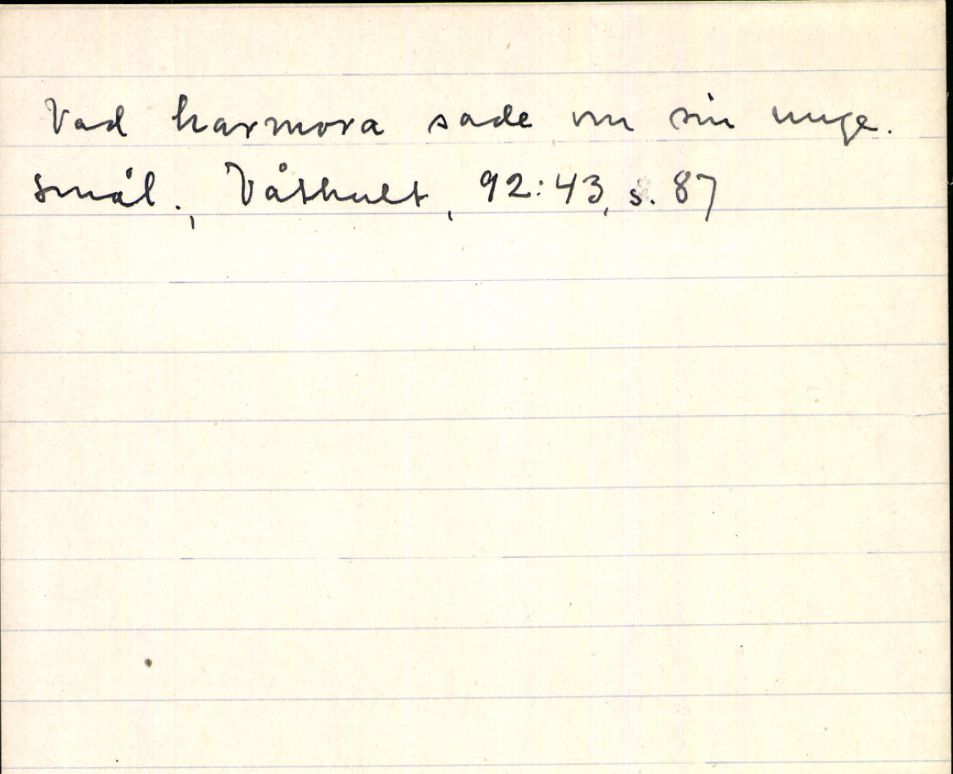 Vad harmora sade om sin unge.
Smål., Våthult, 92:43, s. 87